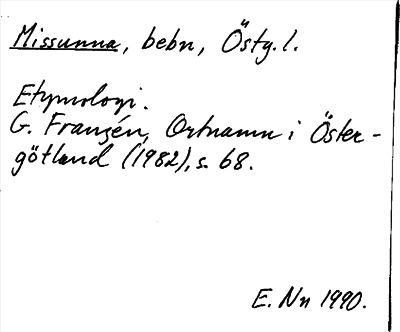 Missunna, bebn, Östg. l.
Etymologi.
G. Franzén, Ortnamn i Öster-
götland (1982), s. 68.
E. Nn 1990.